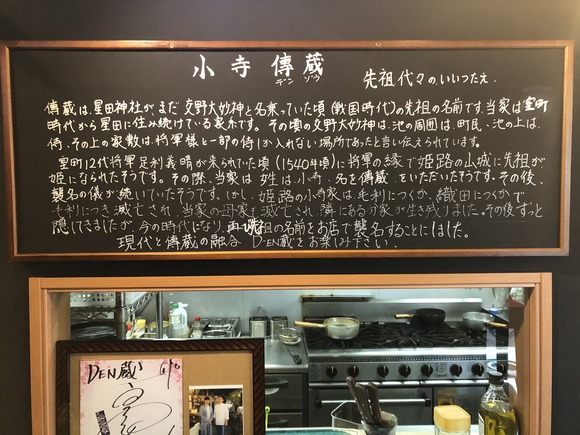 小寺 傳蔵
デン ゾウ
先祖代々のいいつたえ.
傳蔵は、星田神社がまだ交野大妙神と名乗っていた頃(戦国時代)の先祖の名前です。当家は室町
時代から星田に住み続けている家系です。その頃の交野大妙神は、池の周囲は、町民、池の上は、
侍、その上の家敷は、将軍様と一部の侍しか入れない場所であったと言い伝えられています。
室町12代将軍足利義晴が来られていた頃(1540年頃)に将軍の縁で姫路の山城に先祖が
姫になられたそうです。その際、当家は姓は、小寺、名を傳蔵、をいただいたそうです。その後、
襲名の儀が続いていたそうです。しかし、姫路の小寺家は、毛利につくか、織田につくかで
毛利につき滅亡され、当家の母家も滅亡され、隣にある分家が生き残りました。その後ずっと
隠してきましたが、今の時代になり、再び先祖の名前をお店で襲名することにしました。
現代と傳蔵の融合 D-EN蔵をお楽しみ下さい.
DEN蔵